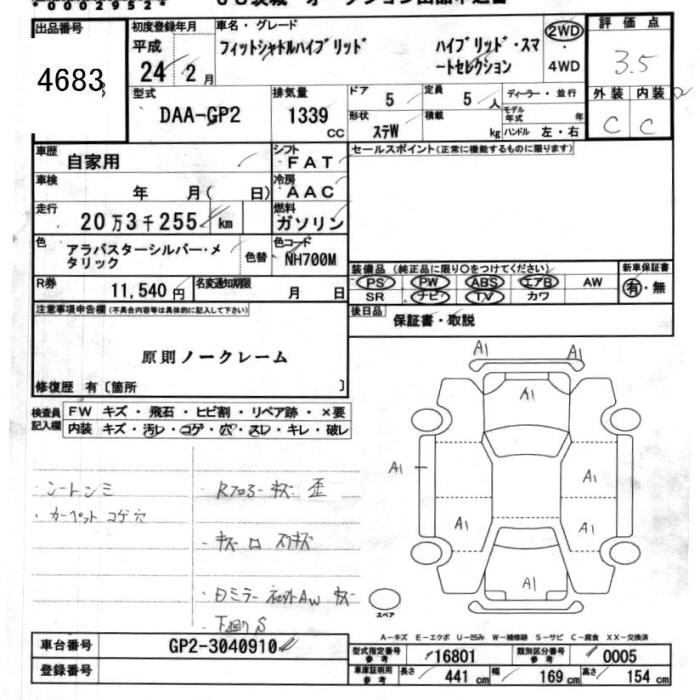 *00029524*
出品番号
4683
初度登録年月
平成
24年 2月
車名・グレード
フィットシャトルハイブリッド
ハイブリッド・スマートセレクション
2WD
4WD
評価点
3.5
型式
DAA-GP2
排気量
1339 CC
ドア 5
定員 5 人
形状 ステW
積載 kg
ディーラー・並行
モデル年式 年
ハンドル 左・右
外装 内装
C C
車歴 自家用
シフト FAT
セールスポイント(正常に機能するものに限ります)
車検 年 月( 日)
冷房 AAC
走行 20万3千255 km
燃料 ガソリン
色 アラバスターシルバー・メタリック
色替
色コード NH700M
装備品 (純正品に限り○をつけてください)
PS PW ABS エアB AW
SR ナビ TV カワ
新車保証書
有・無
R券 11,540円
名変通知期限 月 日
後日品 保証書・取説
注意事項申告欄(不具合内容等は具体的に記入して下さい)
原則ノークレーム
修復歴 有〔箇所 〕
検査員記入欄
FW キズ・飛石・ヒビ割・リペア跡・×要
内装 キズ・汚レ・コゲ・穴・スレ・キレ・破レ
・シートシミ
・カーペット コゲ穴
・キズ
下廻りS
A1
A1
A1
A1
A1
A1
A1
A1
スペア
A-キズ E-エクボ U-凹み W-補修跡 S-サビ C-腐食 XX-交換済
車台番号 GP2-3040910
登録番号
型式指定番号 参考 16801
類別区分番号 参考 0005
車庫証明用 参考 長さ 441 cm 幅 169 cm 高さ 154 cm